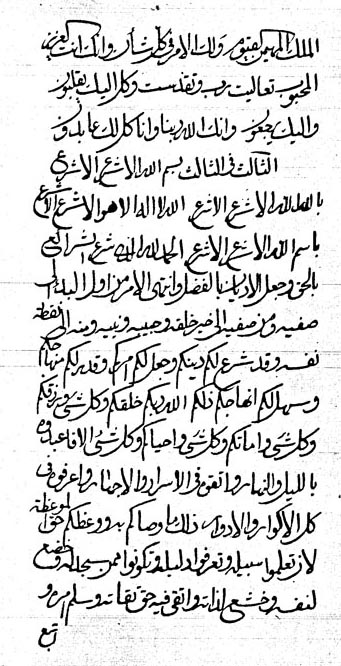 الملك المهيمن القيوم ولك الامر في كل شأن وانك انت العزيز
المحبوب تعاليت رب وتقدست وكل اليك يقلبون
واليك يرجعون وانك الله ربنا وانا كل لك عابدون
الثالث في الثالث بسم الله الاشرع الاشرع
بالله الله الاشرع الاشرع الله لا اله الا هو الاشرع الاشرع
باسم الله الاشرع الاشرع الحمد لله الذي شرع الشرايع
بالحق وجعل الاديان بالفضل وانهى الامر من اول
صفيه ومن صفيه الى خير خلقه وحبيبه ونبيه ومنه الى نقطة
نفسه وقد شرع لكم دينكم وجعل لكم امركم وقدر لكم منهاجكم
وسهل لكم انهاجكم ذلكم الله ربكم خلقكم وكل شيء ورزقكم
وكل شيء واماتكم وكل شيء واحياكم وكل شيء الا فاعبدوه
بالليل والنهار واتقوه في الاسرار والاجهار واعرفوه في
كل الاكوار والادوار ذلك ما وصاكم به ووعظكم حق الموعظة
لان تعلموا سبيله وتعرفوا دليله وتكونوا ممن سجد له وخضع
لنفسه وخشع لذاته واتقى فيه حق تقاته وسلم امره